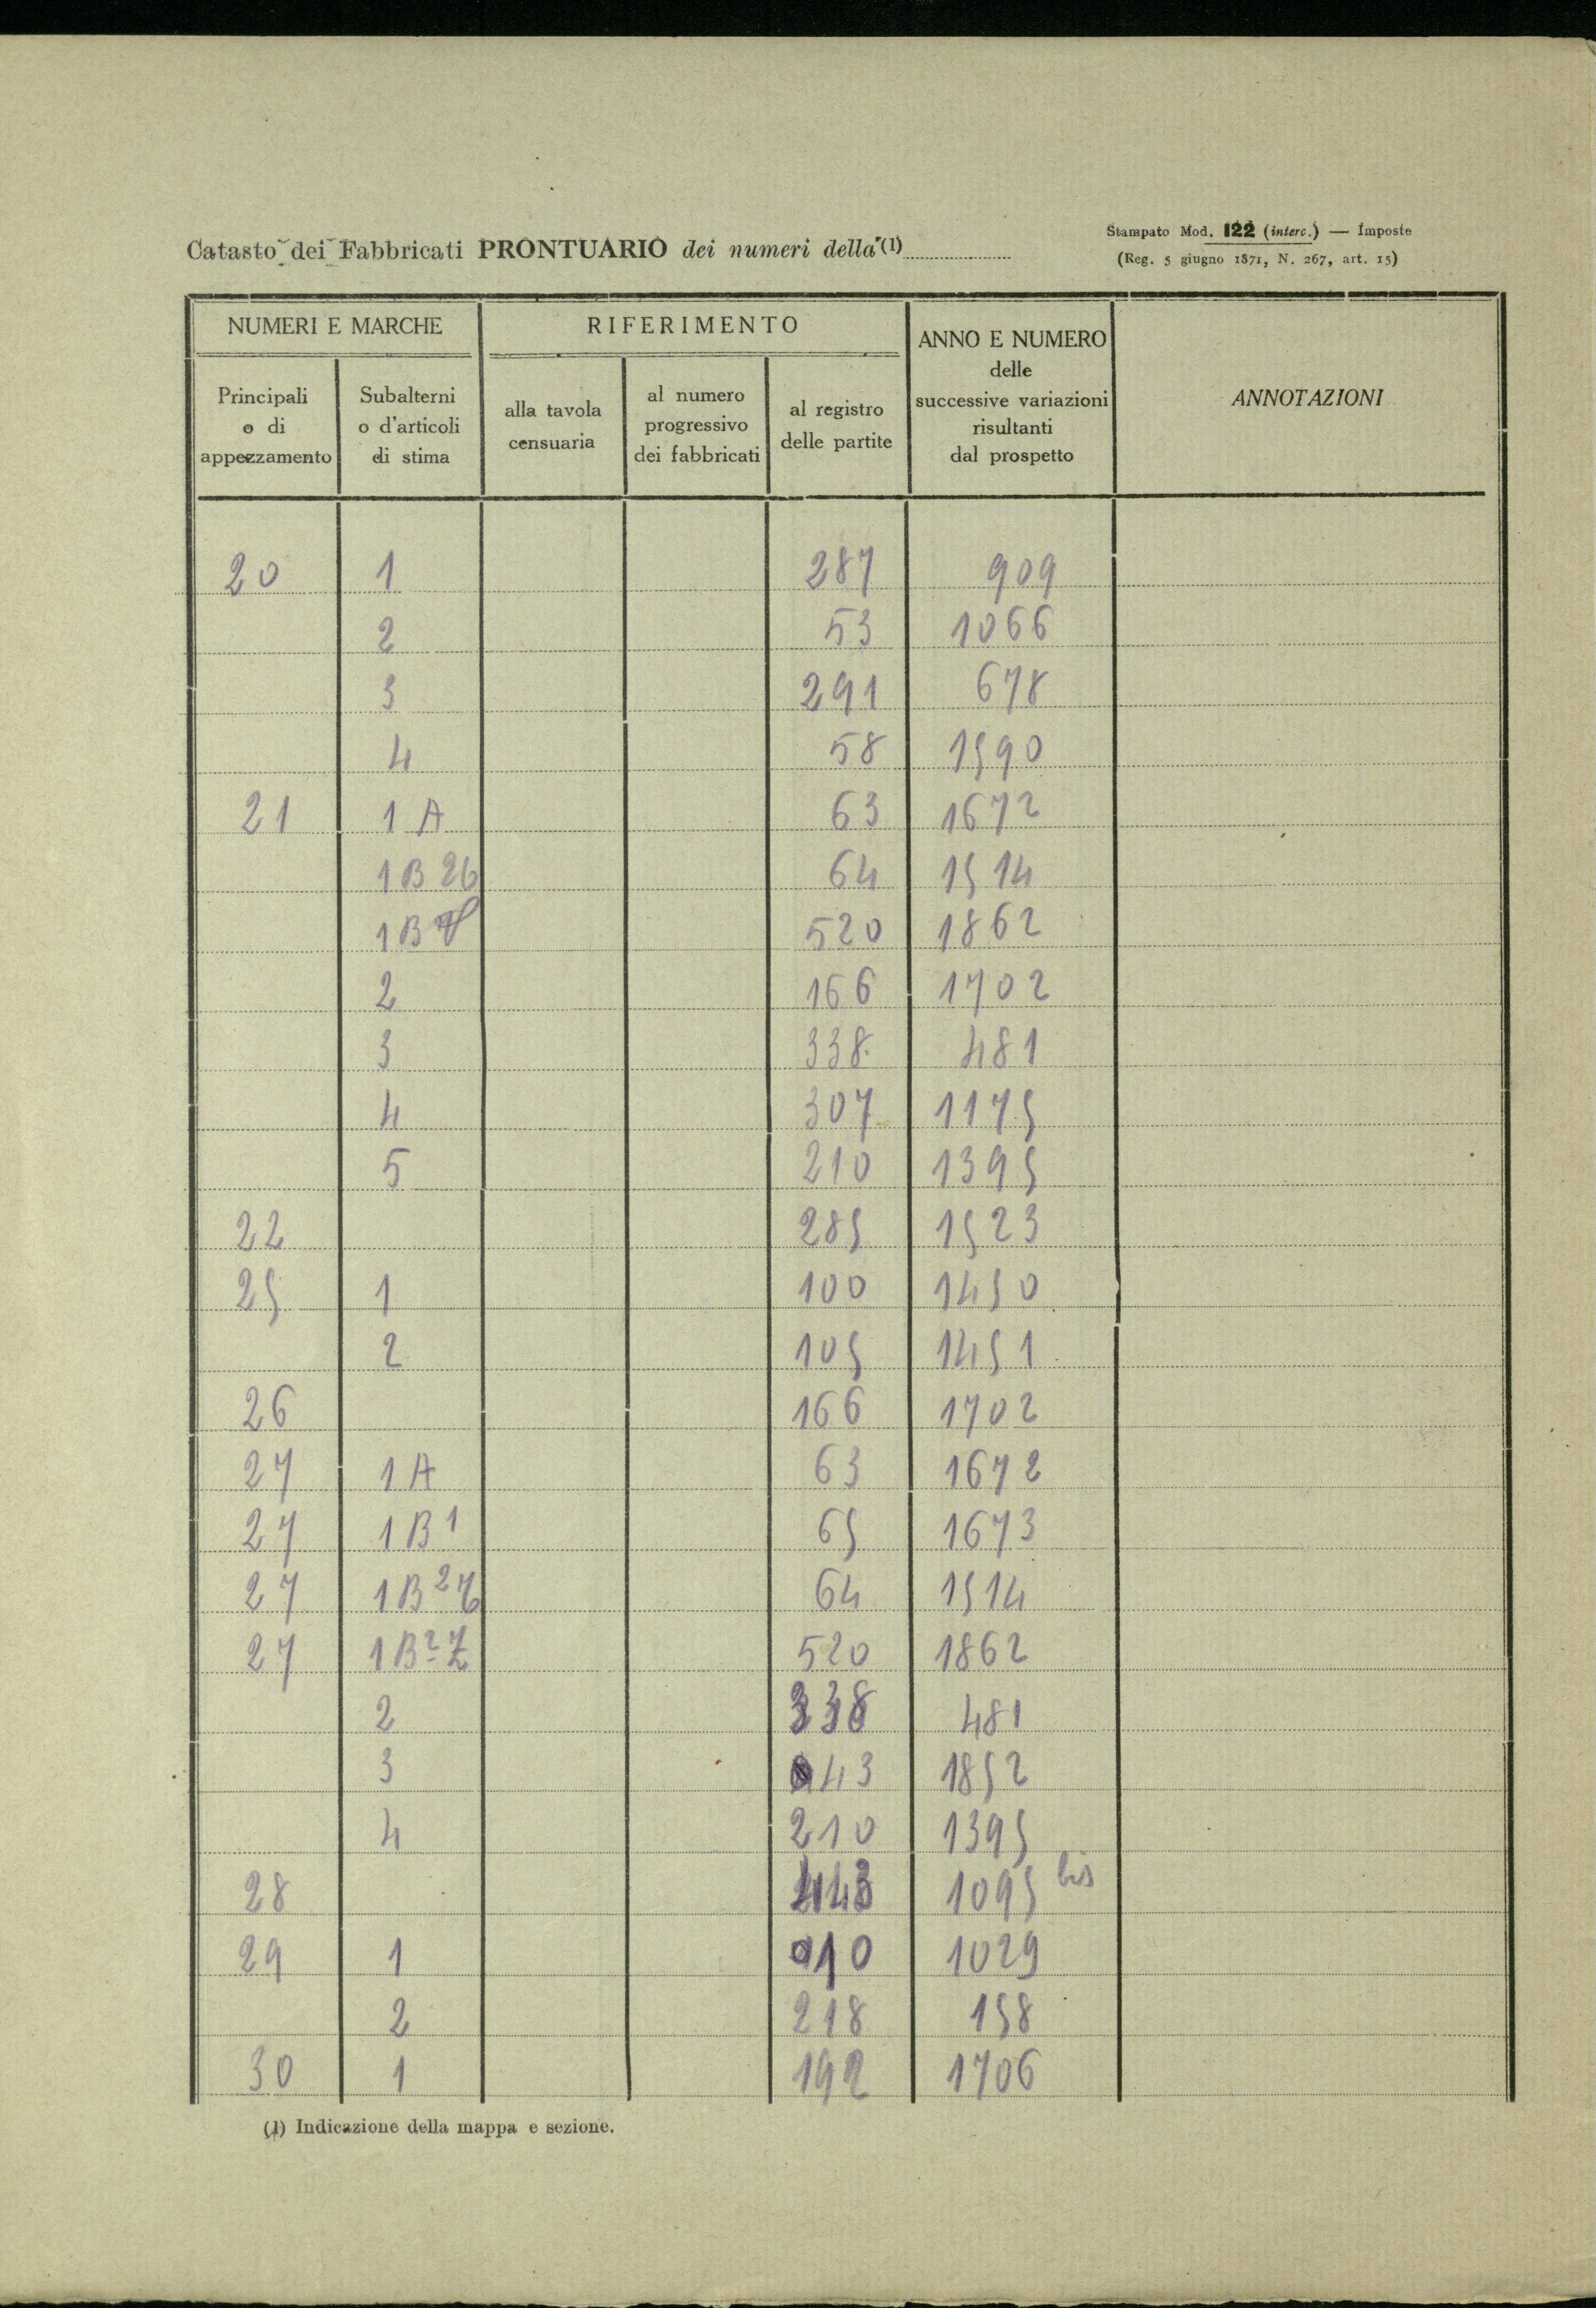 Catasto dei Fabbricati PRONTUARIO dei numeri della (1)
Stampato Mod. 122 (interc.) — Imposte
(Reg. 5 giugno 1871, N. 267, art. 15)
NUMERI E MARCHE
RIFERIMENTO
ANNO E NUMERO
delle
successive variazioni
risultanti
dal prospetto
ANNOTAZIONI
Principali
o di
appezzamento
Subalterni
o d'articoli
di stima
alla tavola
censuaria
al numero
progressivo
dei fabbricati
al registro
delle partite
20 1 287 909
2 53 1066
3 291 678
4 58 1590
21 1 A 63 1672
1 B 2b 64 1514
1 B 520 1862
2 166 1702
3 338 481
4 307 1175
5 210 1395
22 285 1523
25 1 100 1450
2 105 1451
26 166 1702
27 1 A 63 1672
27 1 B 1 65 1673
27 64 1514
27 1 B 2 Z 520 1862
2 338 481
3 43 1852
4 210 1395
28 1095 bis
29 1 10 1029
2 218 158
30 1 192 1706
(1) Indicazione della mappa e sezione.